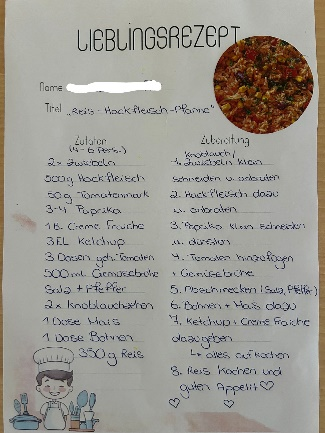 LIEBLINGSREZEPT
Name
Titel „Reis-Hackfleisch-Pfanne"
Zutaten
(4-6 Pers.)
2x Zwiebeln
500g Hackfleisch
50g Tomatenmark
3-4 Paprika
1 B. Creme Fraiche
3EL Ketchup
3 Dosen geh. Tomaten
500ml Gemüsebrühe
Salz + Pfeffer
2x Knoblauchzehen
1 Dose Mais
1 Dose Bohnen
350g Reis
Zubereitung
Knoblauch/
1. Zwiebeln klein
schneiden u. anbraten
2. Hackfleisch dazu
u. anbraten
3. Paprika klein schneiden
u. dünsten
4. Tomaten hinzufügen
+ Gemüsebrühe
5. Abschmecken (Salz, Pfeffer)
6. Bohnen + Mais dazu
7. Ketchup + Creme Fraiche
dazugeben
↳ alles aufkochen
8. Reis kochen und
guten Appetit ♡